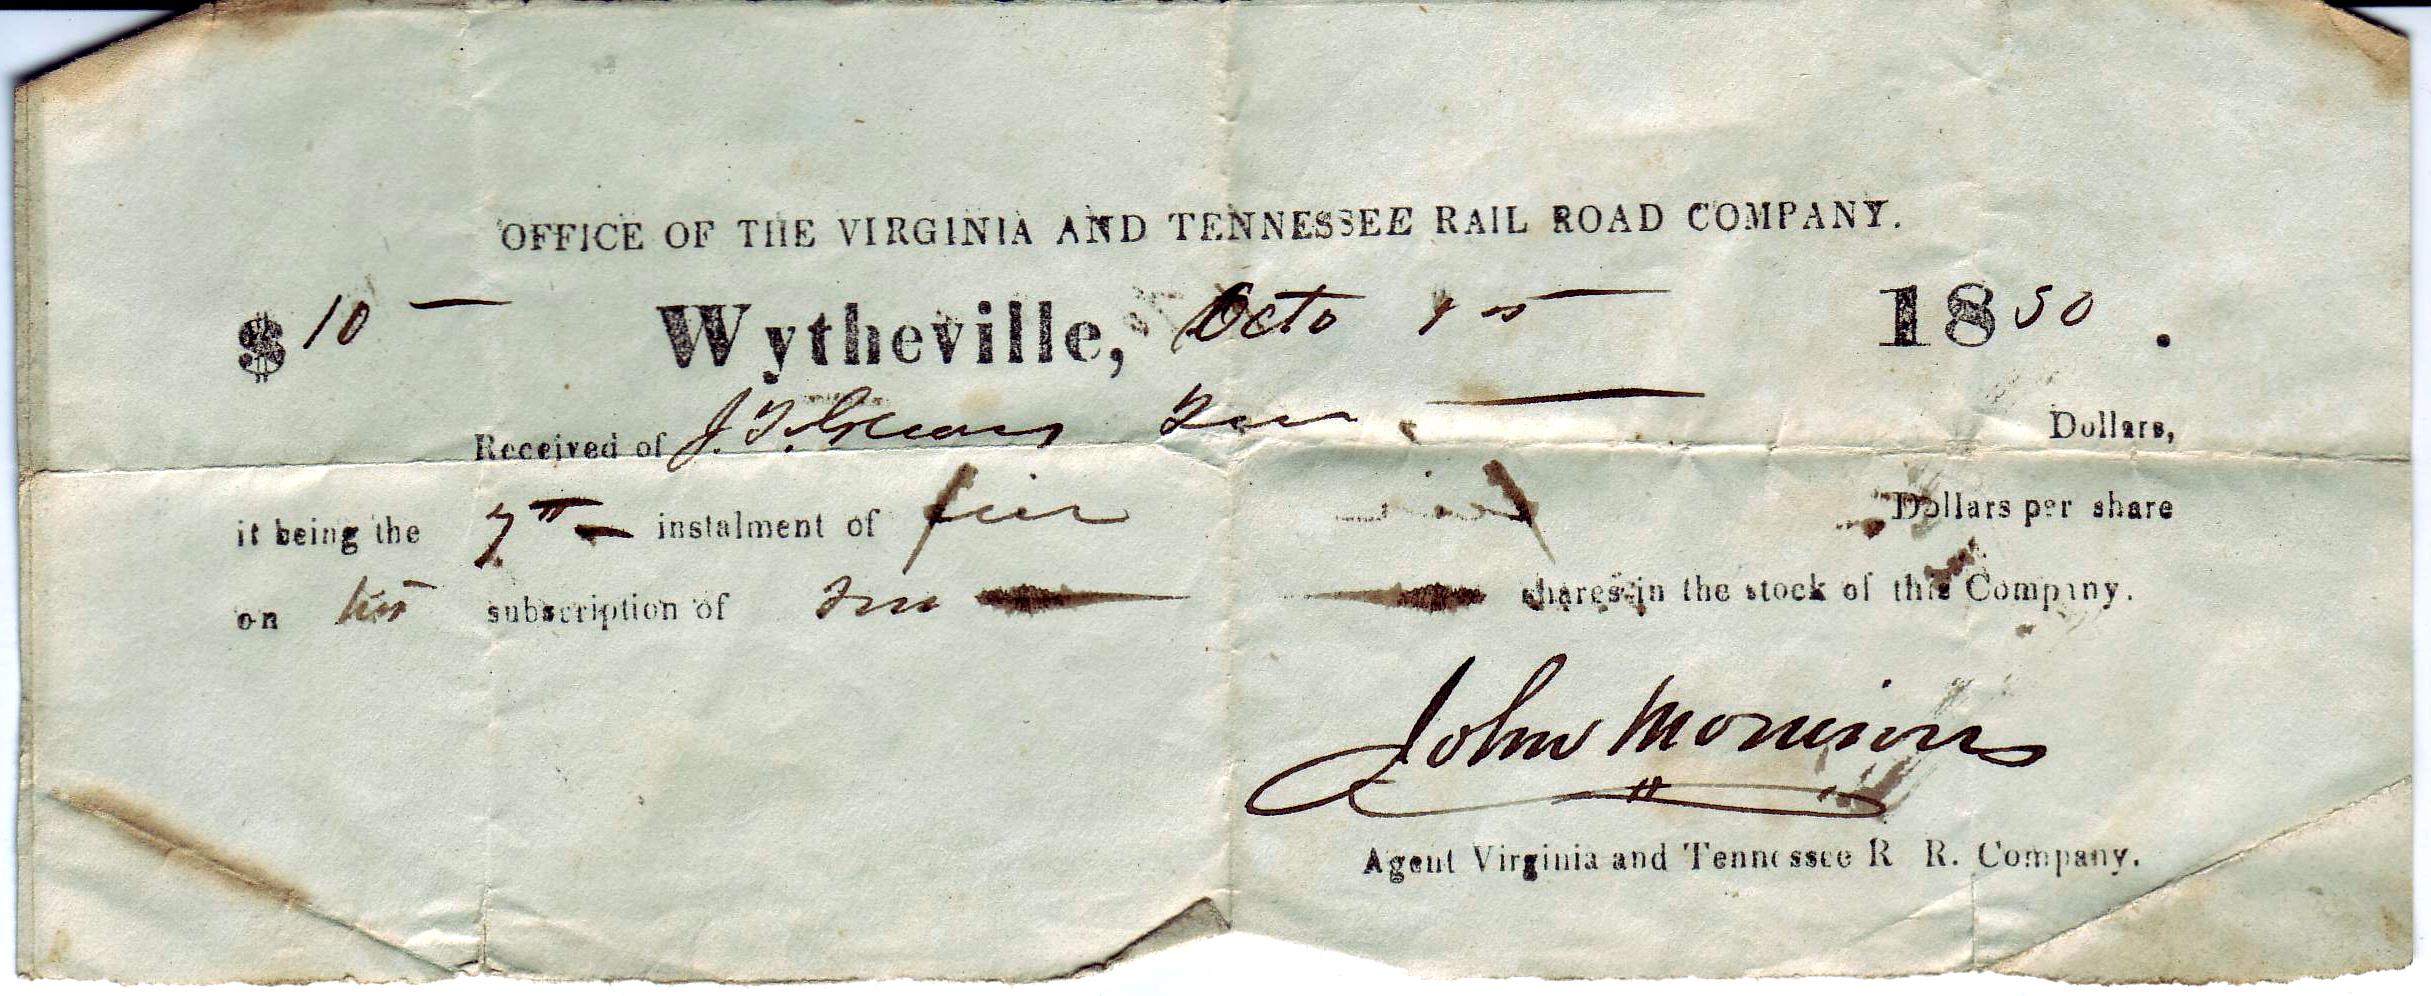 OFFICE OF THE VIRGINIA AND TENNESSEE RAIL ROAD COMPANY.
$ 10 — Wytheville, Octo 1850.
Received of J. T. Ten — Dollars,
it being the 7th instalment of five Dollars per share
on his subscription of Two shares in the stock of this Company.
John Morrison
Agent Virginia and Tennessee R R. Company.